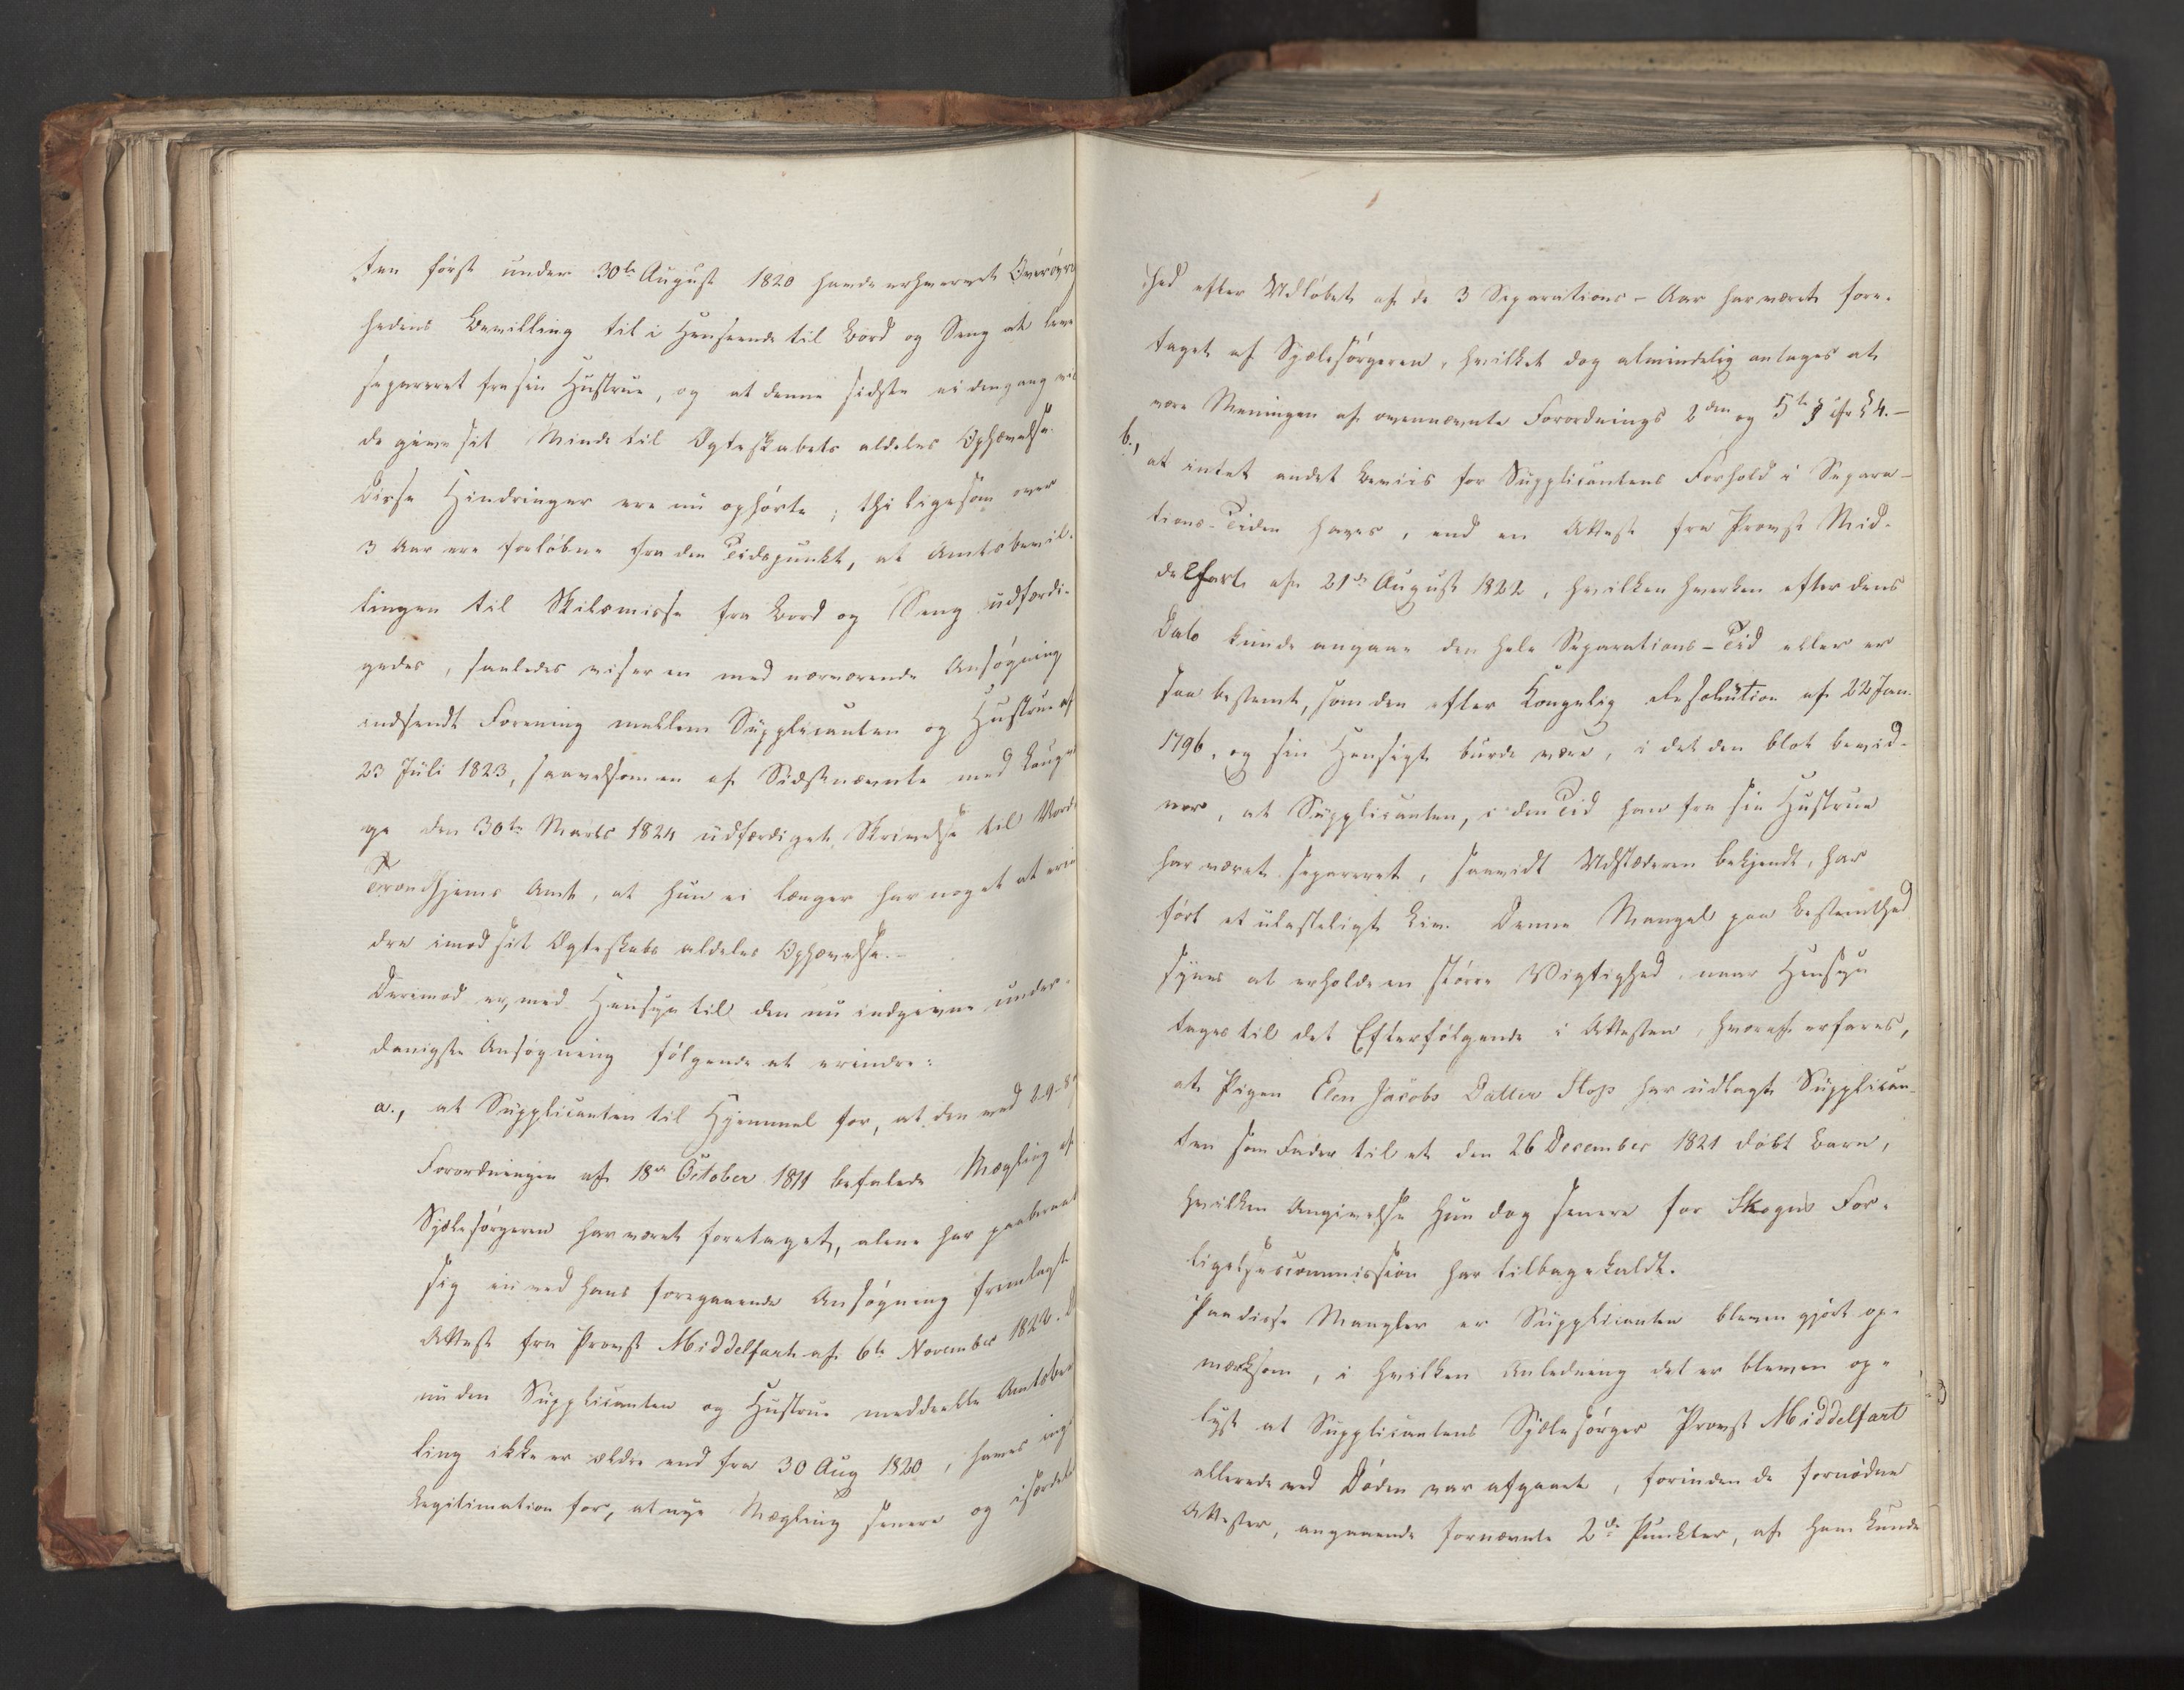 ten først under 30te August 1820 havde erhvervet Overøvrig
hedens Bevilling til i Henseende til Bord og Seng at leve
separeret fra sin Hustrue, og at denne sidste ei dengang vil
de give sit Minde til Ægteskabets aldeles Ophævelse.
Disse Hindringer ere nu ophørte; thi ligesom over
3 Aar ere forløbne fra den Tidspunkt, at Amtsbevil-
lingen til Skilsmisse fra Bord og Seng udfærdi-
gedes, saaledes viser en med nærværende Ansøgning
indsendt Forening mellem Supplicanten og Hustrue af
23 Juli 1823, saavelsom en af Sidstnævnte med Laugvær
ge den 30te Marts 1824 udfærdiget Skrivelse til Nordre
Trondhjems Amt, at hun ei længer har noget at erin
dre imod sit Ægteskabs aldeles Ophævelse.-
Derimod er, med Hensyn til den nu indgivne under-
danigste Ansøgning følgende at erindre:
a., at Supplicanten til Hjemmel for, at den ved 2-9-§
Forordningen af 18de October 1811 befalede Mægling af
Sjælesørgeren har været foretaget, alene har paaberaabt
sig en ved hans foregaaende Ansøgning fremlagt
Attest fra Provst Middelfart af 6te November 1822. D
nu den Supplicanten og Hustrue meddeelte Amtsbevil
ling ikke er ældre end fra 30 Aug 1820, haves ingen
Legitimation for, at nye Mægling senere og isærdeles
hed efter Udløbet af de 3 Separations-Aar har været fore-
taget af Sjælesørgeren, hvilket dog almindelig antages at
være Meningen af ovennævnte Forordnings 2den og 5te § cfr § 4.-
b., at intet andet Beviis for Supplicantens Forhold i Separa-
tions-Tiden haves, end en Attest fra Provst Mid-
delfart af 21de August 1822, hvilken hverken efter dens
Dato kunde angaae den hele Separations-Tid eller er
saa bestemt, som den efter Kongelig Resolution af 22 Jan.
1796, og sin Hensigt burde være, i det den blot bevid-
ner, at Supplicanten, i den Tid han fra sin Hustrue
har været separeret, saavidt Udstæderen bekjendt, har
ført et ulasteligt Liv. Denne Mangel paa Bestemthed
synes at erholde en større Vigtighed, naar Hensyn
tages til det Efterfølgende i Attesten, hvoraf erfares,
at Pigen Elen Jacobs Datter Stop har udlagt Supplican-
ten som Fader til et den 26 December 1821 døbt Barn,
hvilken Angivelse hun dog senere for Skogns For-
ligelsescommission har tilbagekaldt.
Paa disse Mangler er Supplicanten bleven gjort op-
mærksom, i hvilken Anledning det er bleven op-
lyst at Supplicantens Sjælesørger Provst Middelfart
allerede ved Døden var afgaaet, forinden de fornødne
Attester, angaaende fornævnte 2de Punkter, af ham kunde